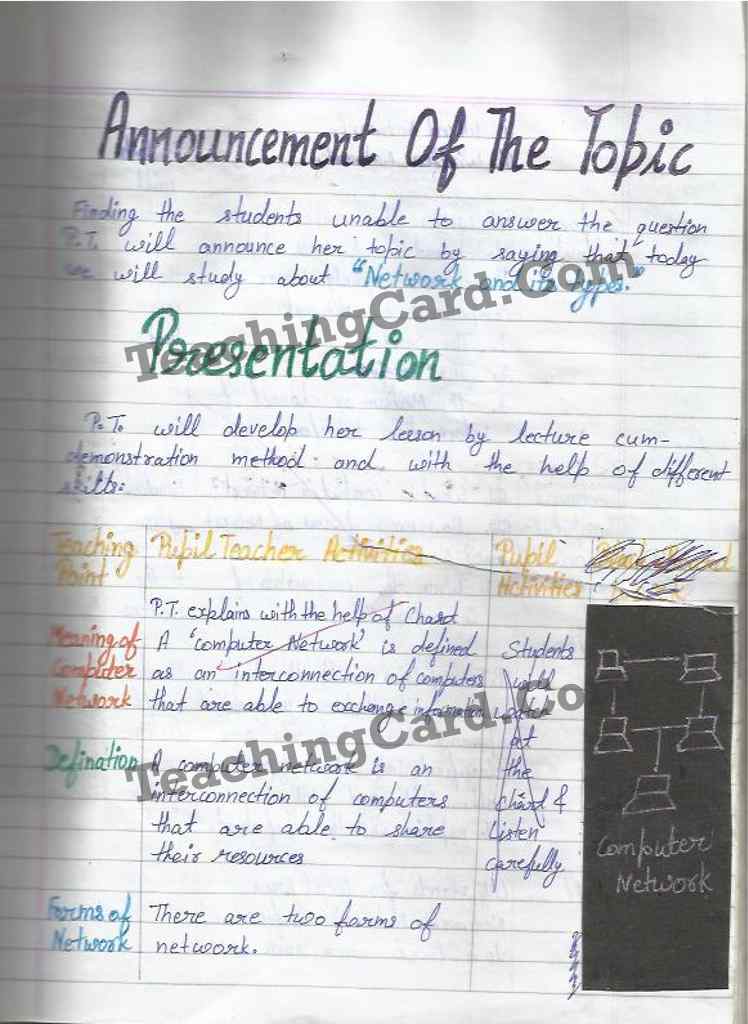 Announcement Of The Topic
Finding the students unable to answer the question
P.T. will announce her topic by saying that today
we will study about "Network and its types."
TeachingCard.Com
Presentation
P.T. will develop her lesson by lecture cum-
demonstration method and with the help of different
skills:
Teaching Point
Pupil Teacher Activities
Pupil Activities
P.T. explains with the help of Chard
Meaning of Computer Network
A 'computer Network' is defined
as an interconnection of computers
that are able to exchange information
Students
will
watch
at
the
Chard &
Listen
carefully
TeachingCard.Co
Defination
A computer network is an
interconnection of computers
that are able to share
their resources
Computer
Network
Forms of
Network
There are two forms of
network.